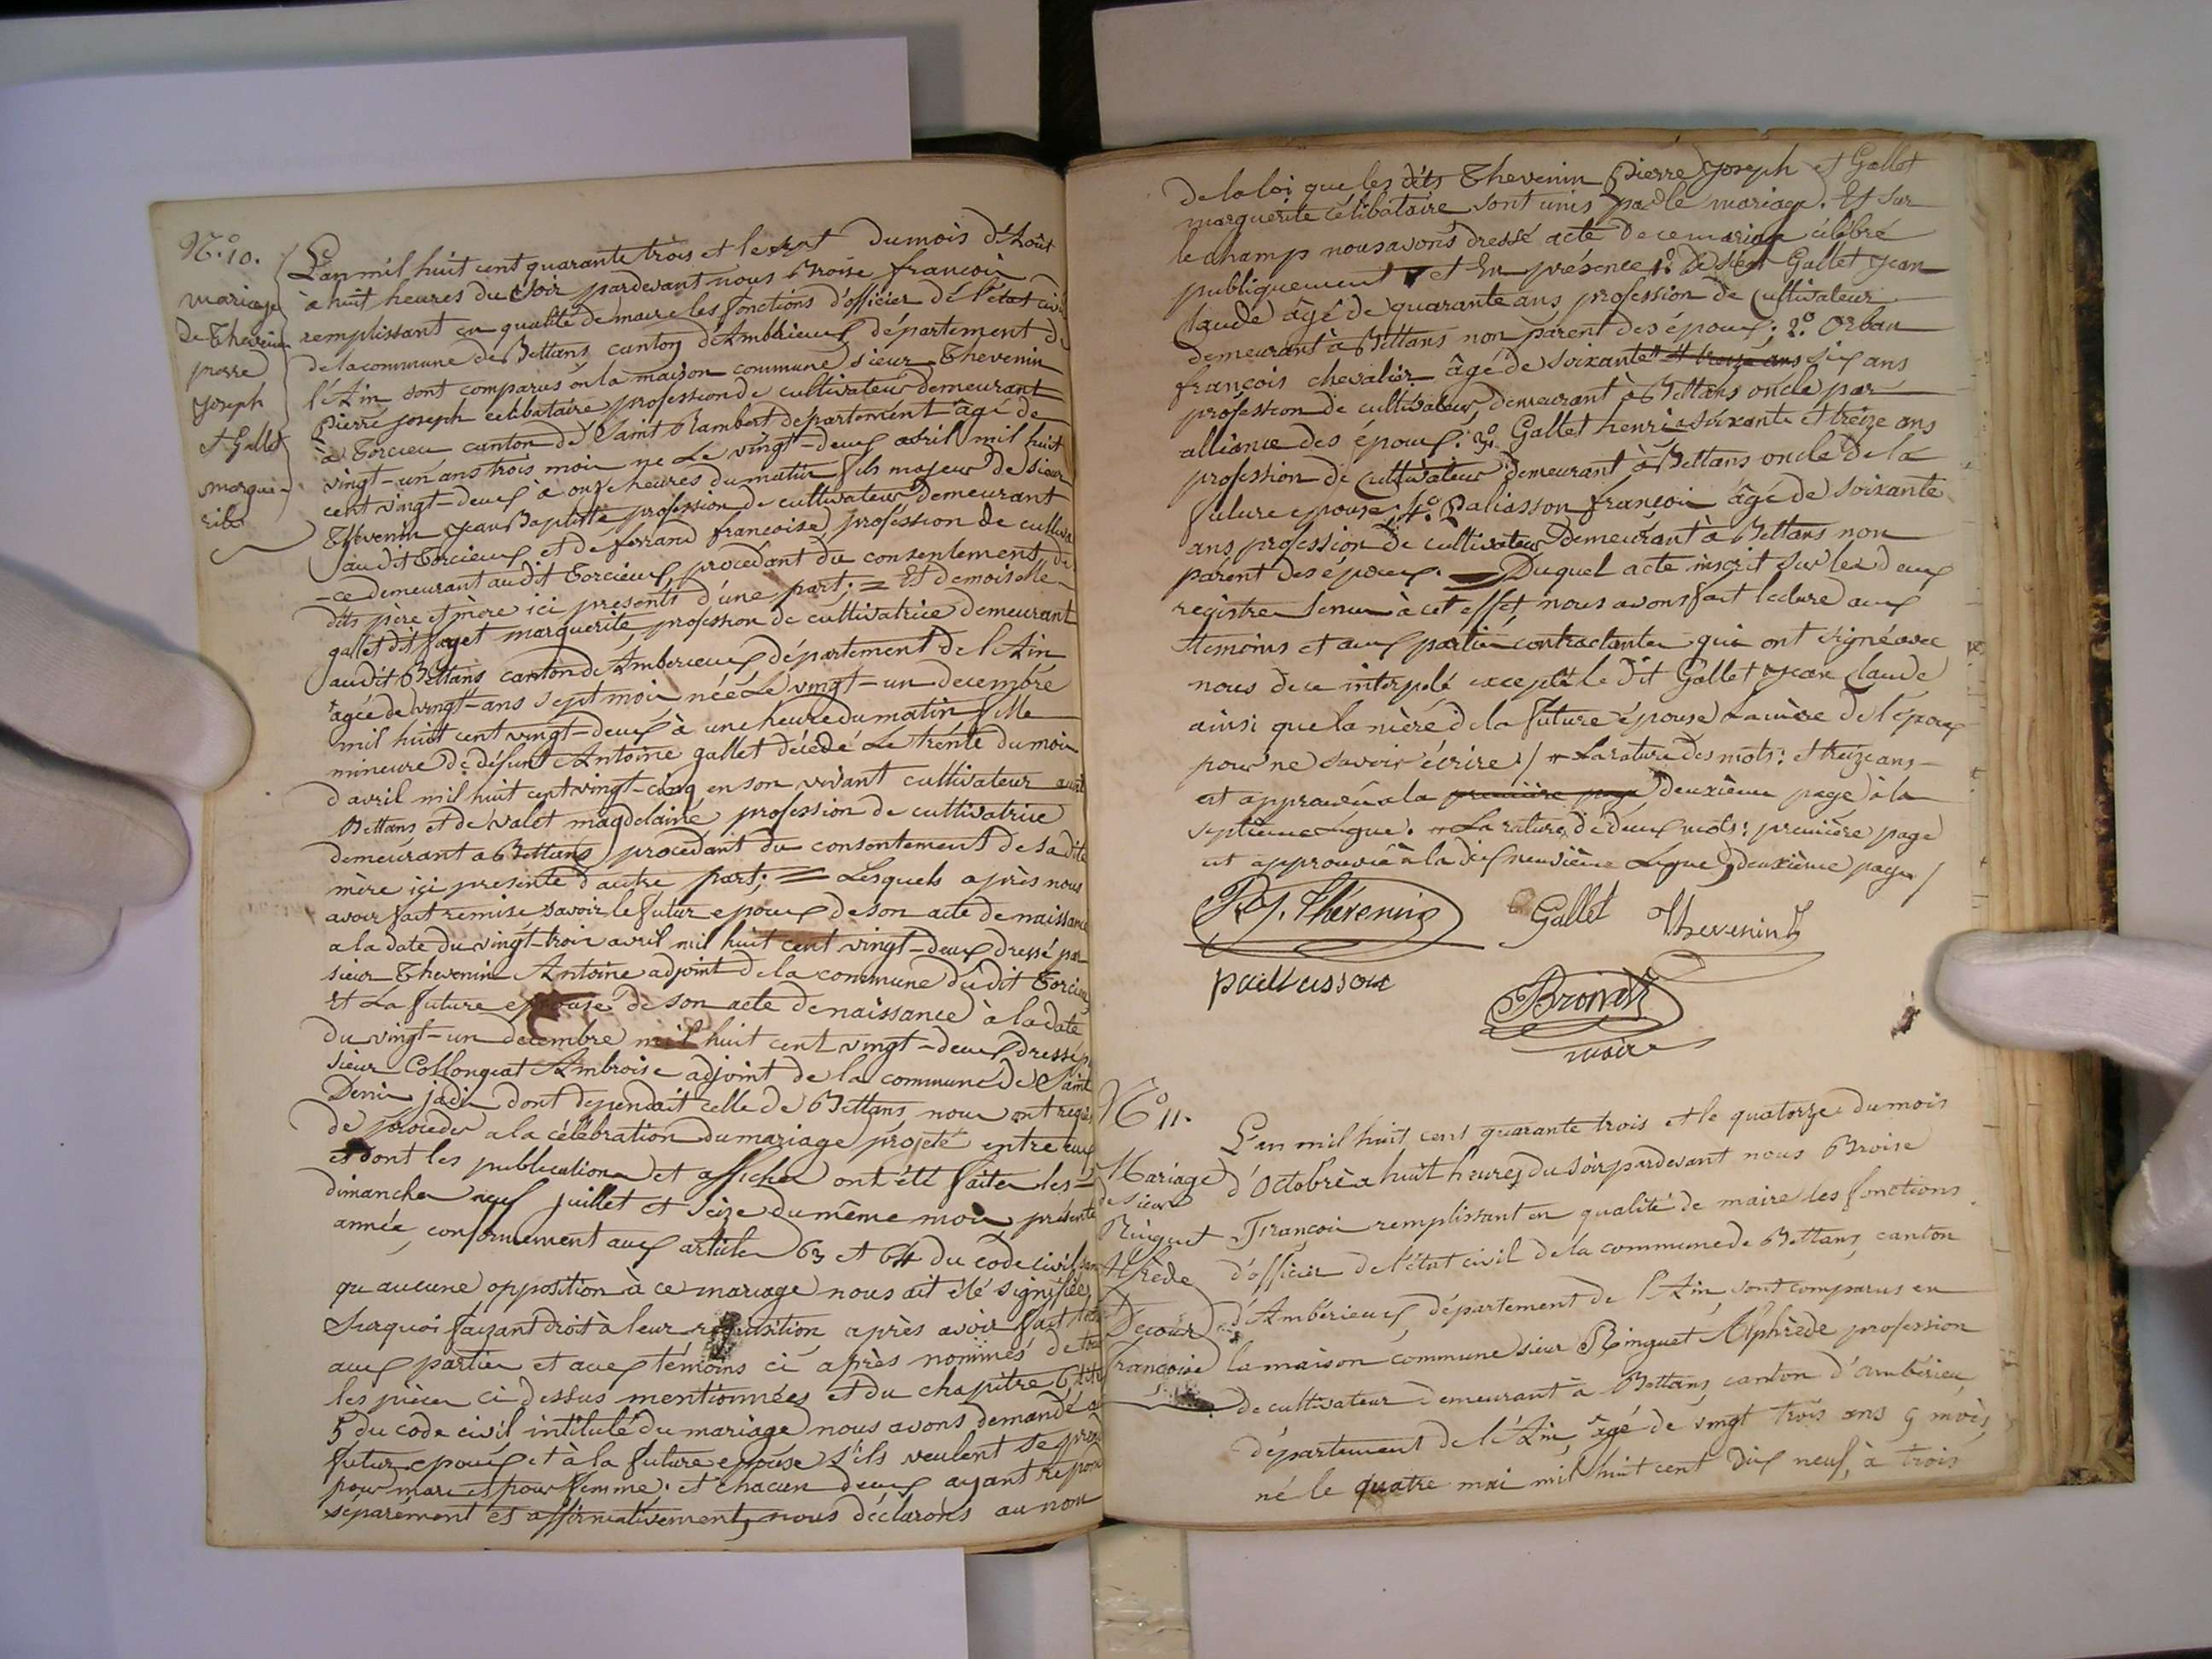 N.° 10.
mariage
De Thevenin
pierre
Joseph
et Gallet
margue-
rite
L'an mil huit cent quarante trois et le sept du mois d'Août
à huit heures du soir pardevant nous Broise françois
remplissant en qualité de maire les fonctions d'officier de l'état civil
de la commune de Bettans canton d'Ambérieux département de
l'Ain sont comparus en la maison commune sieur Thevenin
Pierre joseph celibataire profession de cultivateur demeurant
à Torcieu canton de Saint Rambert département âgé de
vingt-un ans trois mois ne Le vingt-deux avril mil huit
cent vingt-deux à onze heures du matin fils majeur de sieur
Thevenin Jean Baptiste profession de cultivateur demeurant
audit Torcieux et de ferrand francoise profession de cultiva
-ce demeurant audit Torcieux procedant du consentement de
dits père et mère ici presents d'une part; = Et demoiselle
gallet dit faget marguerite profession de cultivatrice demeurant
audit Bettans canton de Amberieux département de l'Ain
agée de vingt-ans sept mois née Le vingt-un decembre
mil huit cent vingt-deux à une heure du matin fille
mineure de défunt Antoine gallet décédé Le trente du mois
d'avril mil huit cent vingt-cinq en son vivant cultivateur audit
Bettans et de valet magdelaine profession de cultivatrice
demeurant a Bettans procedant du consentement de sa dite
mère içi presente d'autre part; = Lesquels après nous
avoir fait remise savoir le futur epoux de son acte de naissance
a la date du vingt-trois avril mil huit cent vingt-deux dressé par
sieur Thevenin Antoine adjoint de la commune dudit Torcieu
Et La future epouse de son acte de naissance à la date
du vingt-un decembre mil huit cent vingt-deux dressé p
sieur Collongeat Ambroise adjoint de la commune de Saint
Denis jadis dont dependait celle de Bettans nous ont requis
de procéder a la célébration du mariage projeté entre eux
et dont les publications et affiches ont été faites les =
dimanches neuf juillet et seize du même mois, présente
année, conformement aux articles 63 et 64 du code civil sans
qu'aucune opposition à ce mariage nous ait été signifiée
Surquoi fayant droit à leur requisition après avoir fait
aux parties et aux témoins ci après nommés de
les pièces ci dessus mentionnées et du chapitre 6
5 du code civil intitulé du mariage nous avons demandé a
futur epoux et à la future epouse s'ils veulent se prend
pour mari et pour femme. et chacun deux ayant repon
séparément et affirmativement, nous déclarons au nom
de la loi que les dits Thevenin Pierre Joseph et Gallet
marguerite célibataire sont unis par le mariage. Et sur
le champ nous avons dressé acte de ce mariage célébré
publiquement et En présence 1.° De sieur Gallet Jean
Claude âgé de quarante ans profession de cultivateur
demeurant à Bettans non parent des époux; 2.° Orban
françois chevalier âgé de soixante et treize ans six ans
profession de cultivateur demeurant à Bettans oncle par
alliance des époux. 3.° Gallet henri soixante et treize ans
profession de cultivateur demeurant à Bettans oncle de la
future epouse; 4.° Paliasson françois âgé de soixante
ans profession de cultivateur demeurant à Bettans non
parent des époux. — Duquel acte inscrit sur les deux
registres tenus à cet effet, nous avons fait lecture aux
temoins et aux parties contractantes qui ont signé avec
nous de ce interpelé excepté le dit Gallet Jean Claude
ainsi que la mère de la future épouse La mère de l'époux
pour ne savoir écrire / La rature des mots: et treize ans —
est approuvée a la première page deuxième page à la
septième Ligne. La rature de deux mots: première page
est approuvée à la dix neuvième Ligne deuxième page /
P. J. Thévenin Gallet Thevenin
paillasson
Broise
maire
N° 11.
Mariage
de sieur
Ringuet
Decour
françoise
L'an mil huit cent quarante trois et le quatorze du mois
d'Octobre à huit heures du soir pardevant nous Broise
François remplissant en qualité de maire les fonctions
d'officier de l'état civil de la commune de Bettans, canton
d'Ambérieux, département de l'Ain, sont comparus en
la maison commune sieur Ringuet Alphrède profession
de cultivateur demeurant à Bettans, canton d'ambérieu,
département de l'Ain, âgé de vingt trois ans 5 mois,
né le quatre mai mil huit cent dix neuf, à trois